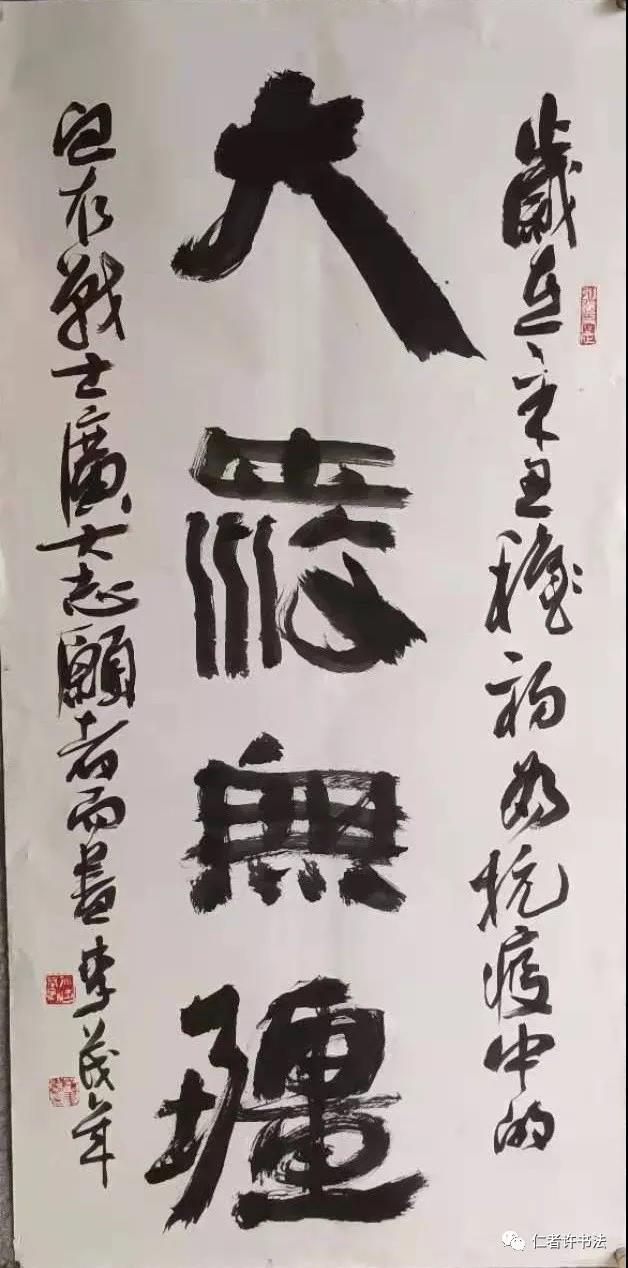 大愛無疆
歲在辛丑秋初為抗疫中的
白衣戰士廣大志願者而書李茂年
仁者许书法